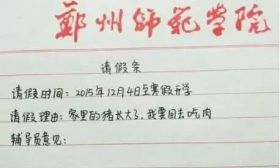 郑州师范学院
请假条
请假时间：2015年12月4日至寒假开学
请假理由：家里的猪长大了，我要回去吃肉
辅导员意见：